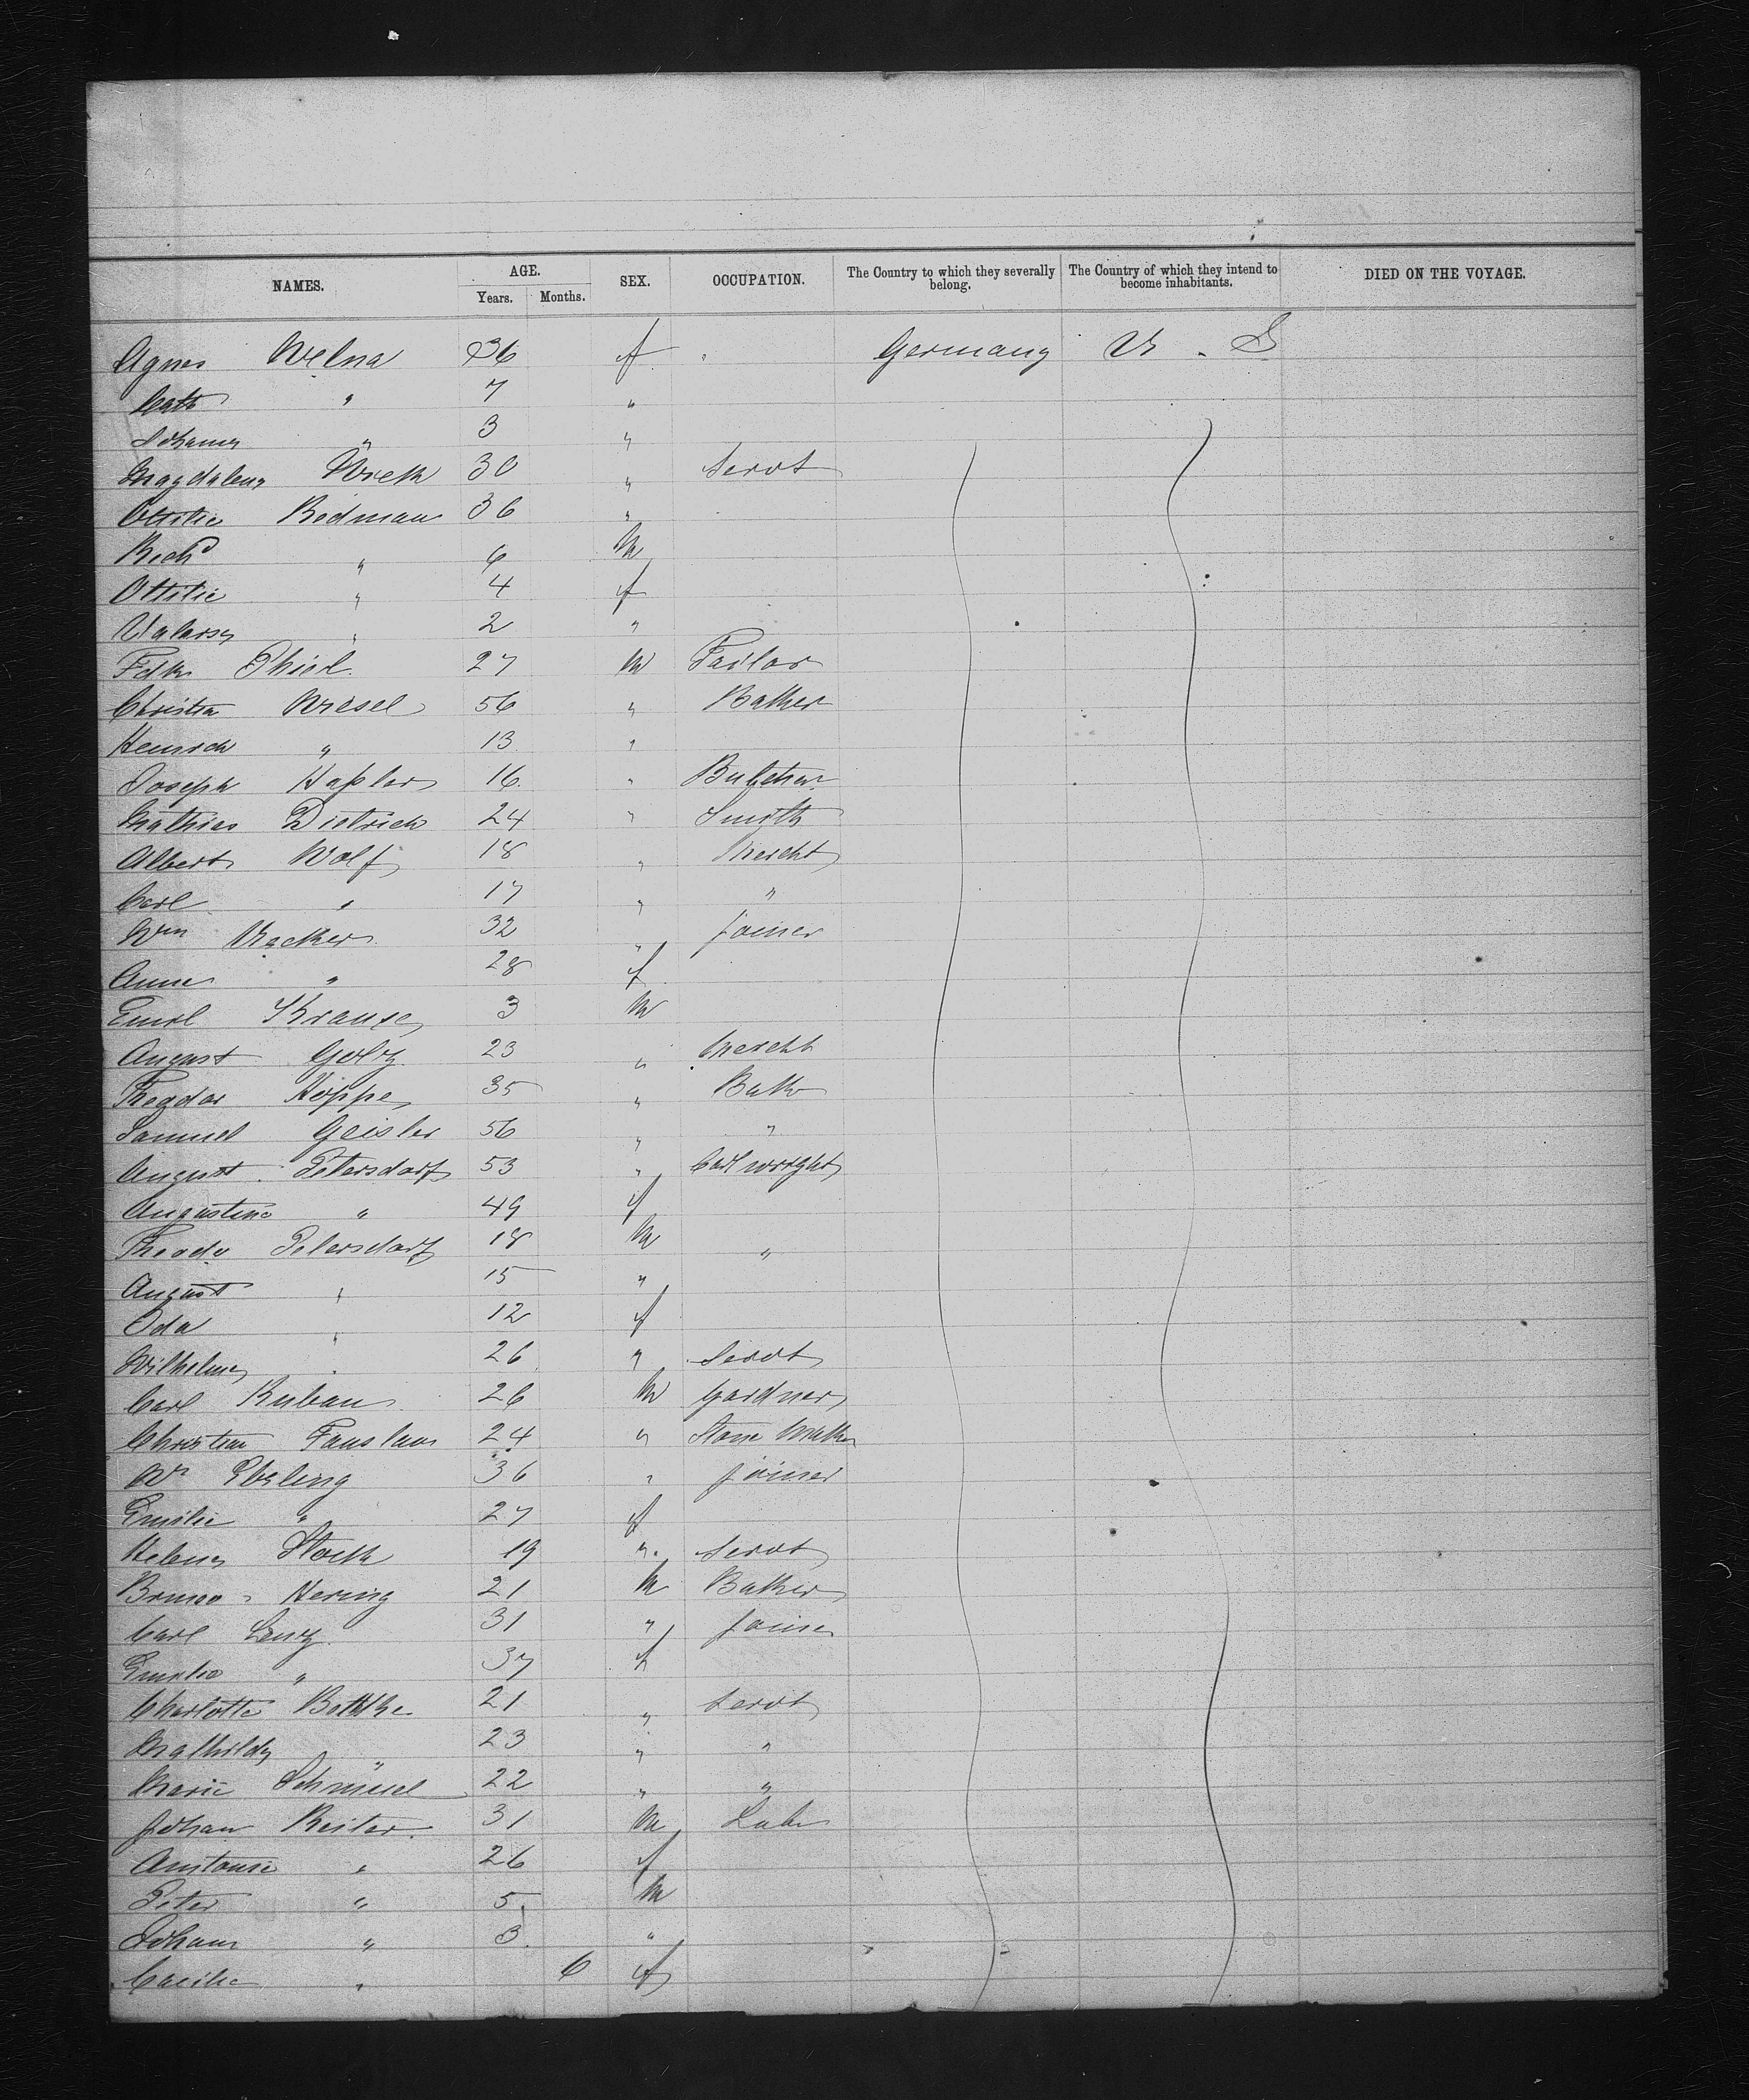 NAMES. AGE. Years. Months. SEX. OCCUPATION. The Country to which they severally belong. The Country of which they intend to become inhabitants. DIED ON THE VOYAGE.
Agnes Welna 36 f " Germany U. S
Cath " 7 "
Johanna " 3 "
Magdalena 30 " Servt
Ottilie Redman 36 "
Rich^d " 6 M
Ottilie " 4 f
" 2 "
Fdk Thiel 27 M Tailor
Christian Wiesel 56 " Baker
Heinrich " 13 "
Joseph Hassler 16 " Butcher
Mathias Dietrich 24 " Smith
Albert Wolf 18 " Mercht
Carl " 17 " "
Wm 32 " Joiner
Anna " 28 f
Emil Krause 3 M
August Golz 23 " Mercht
Theodor Hoppe 35 " Baker
Samuel Geisler 56 " "
August Petersdorf 53 " Cartwright
Augustine " 49 f
Theodo Petersdorf 18 M "
August " 15 "
Ida " 12 f
Wilhelma " 26 " Servt
Carl Ruban 26 M Gardner
Christian Fauslau 24 " Stone
Wm Ebeling 36 " Joiner
Emilie " 27 f
Helena Stock 19 " Servt
Bruno Hering 21 M Baker
Carl Lenz 31 " Joiner
Emilie " 37 f
Charlotte Bethke 21 " Servt
Mathilda " 23 " "
Marie 22 " "
Johan Reiter 31 M Labr
Antonie " 26 f
Peter " 5 M
Johann " 3 "
Cacilie " 6 f